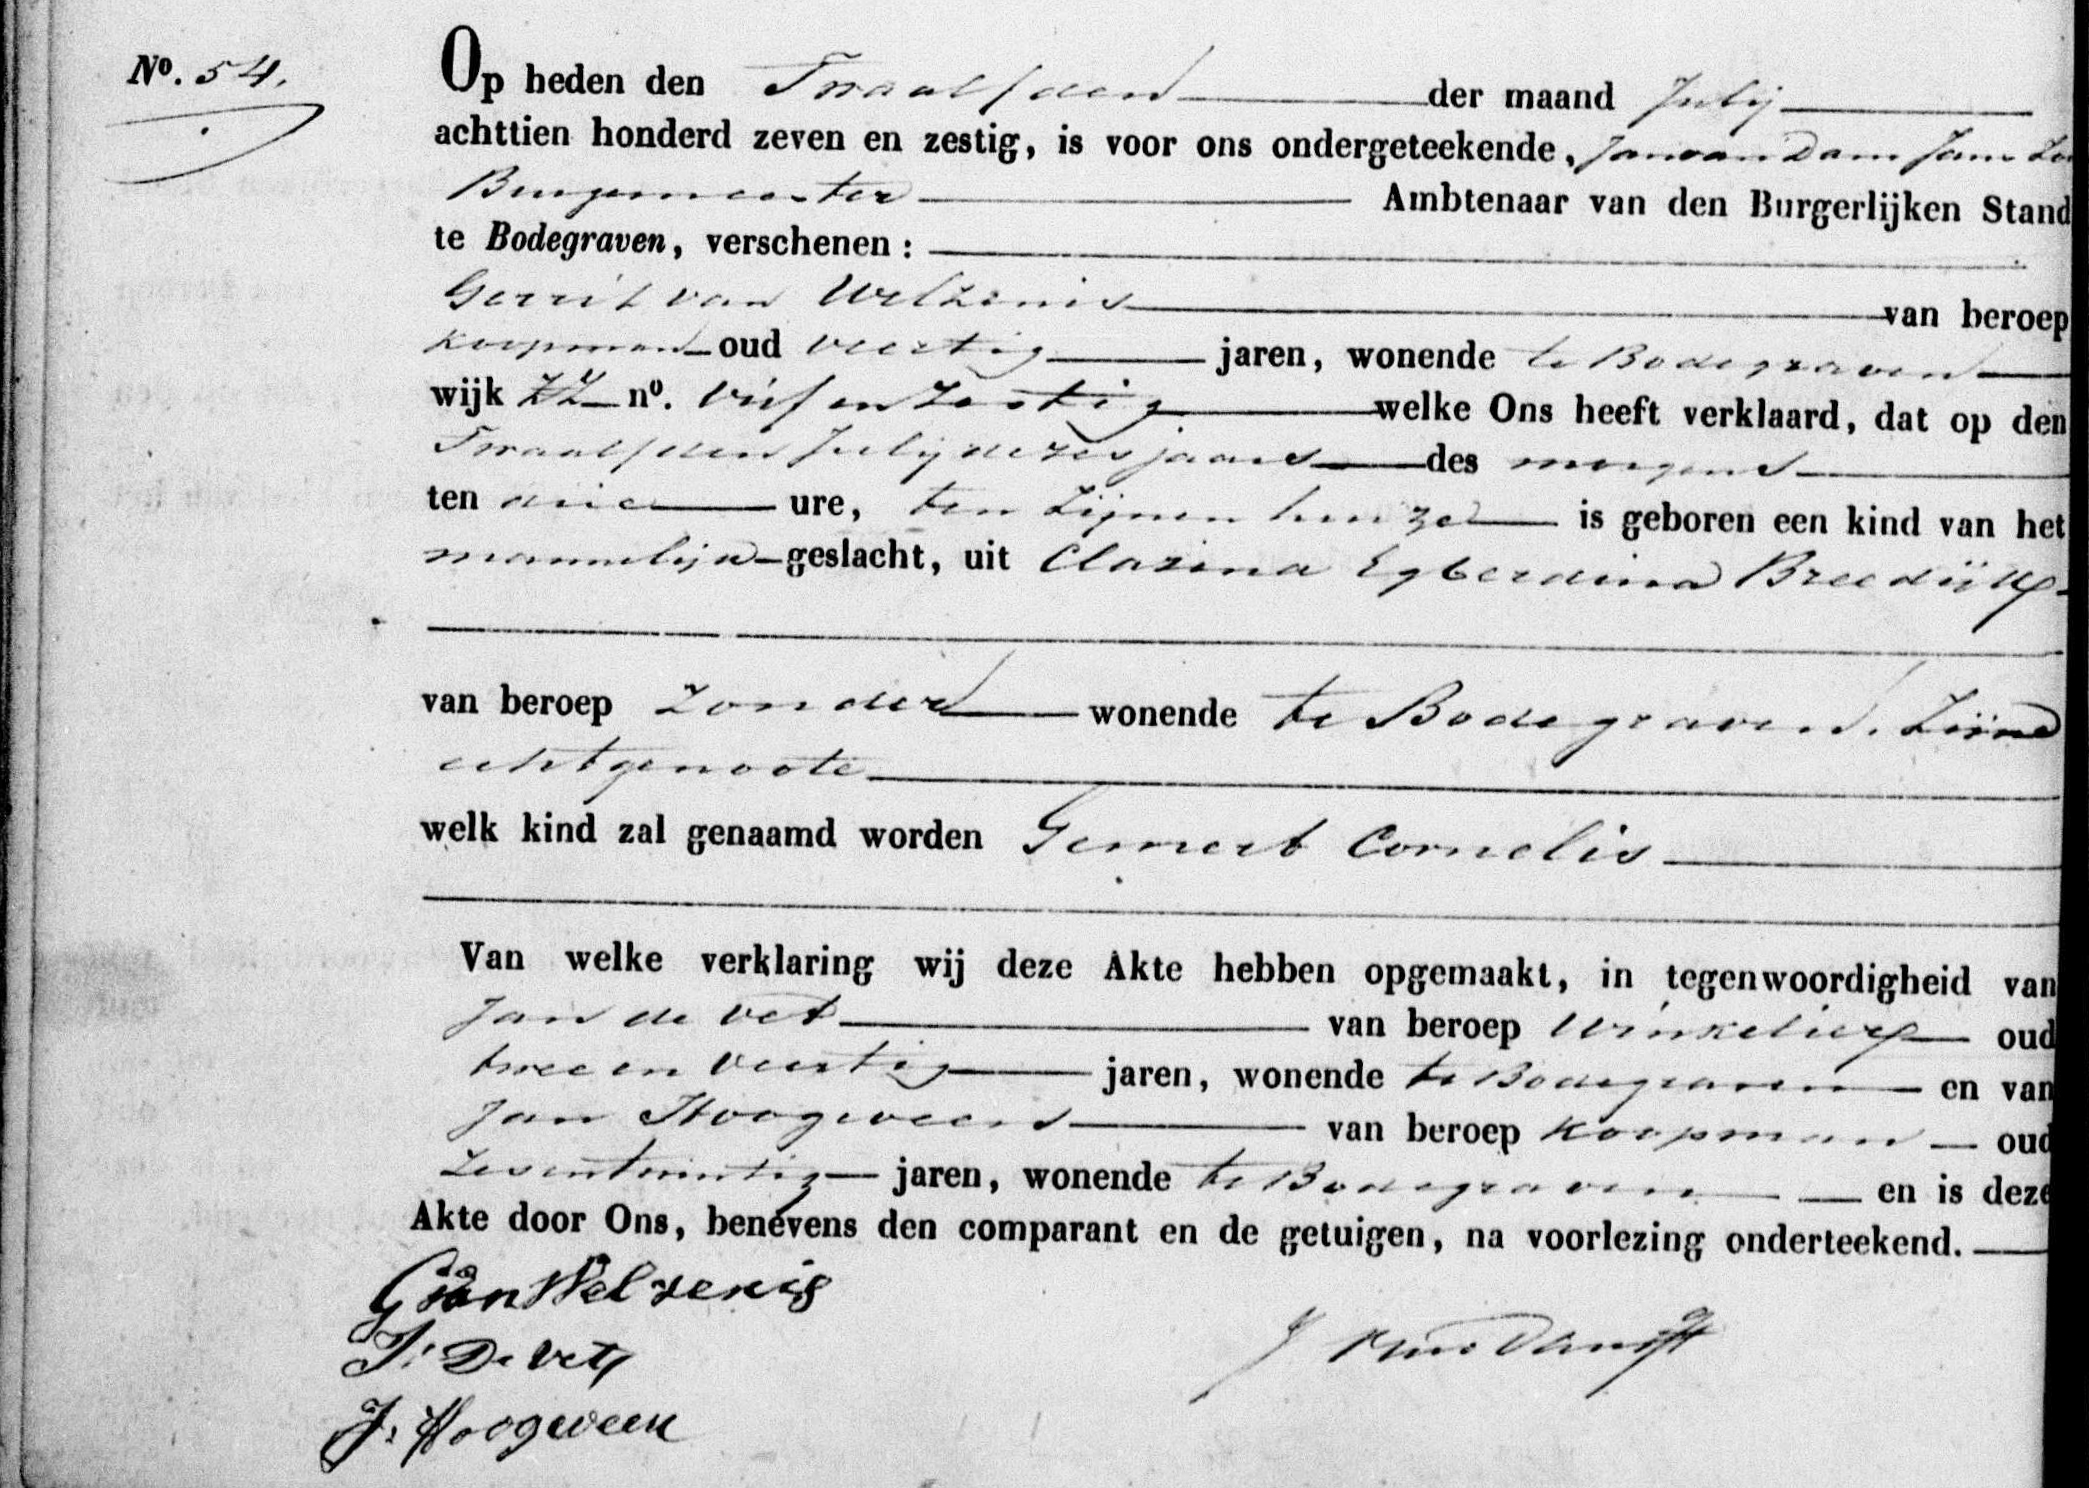 No. 54.
Op heden den Twaalfden der maand Julij
achttien honderd zeven en zestig, is voor ons ondergeteekende, Jan van Dam Jansz
Burgemeester Ambtenaar van den Burgerlijken Stand
te Bodegraven, verschenen:
Gerrit van Welzenis van beroep
koopman oud veertig jaren, wonende te Bodegraven
wijk no. vijf en zestig welke Ons heeft verklaard, dat op den
Twaalfden Julij dezes jaars des morgens
ten drie ure, ten zijnen huize is geboren een kind van het
mannelijk geslacht, uit Clasina Egberdina Breedijk
van beroep zonder wonende te Bodegraven, zijne
echtgenoote
welk kind zal genaamd worden Gemert Cornelis
Van welke verklaring wij deze Akte hebben opgemaakt, in tegenwoordigheid van
Jan de Vet van beroep Winkelier oud
twee en veertig jaren, wonende te Bodegraven en van
Jan Hoogeveen van beroep koopman oud
zesentwintig jaren, wonende te Bodegraven en is deze
Akte door Ons, benevens den comparant en de getuigen, na voorlezing onderteekend.
G van Welzenis
J. De Vet
J van Dam
J. Hoogeveen